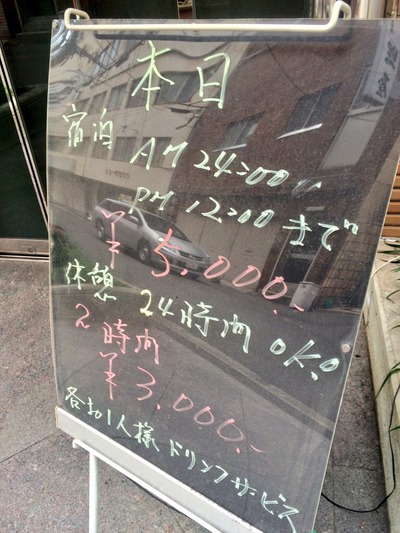 本日
宿泊 AM 24:00〜
PM 12:00まで
¥5,000.-
休憩 24時間OK!
2時間
¥3,000.-
各お1人様ドリンクサービス